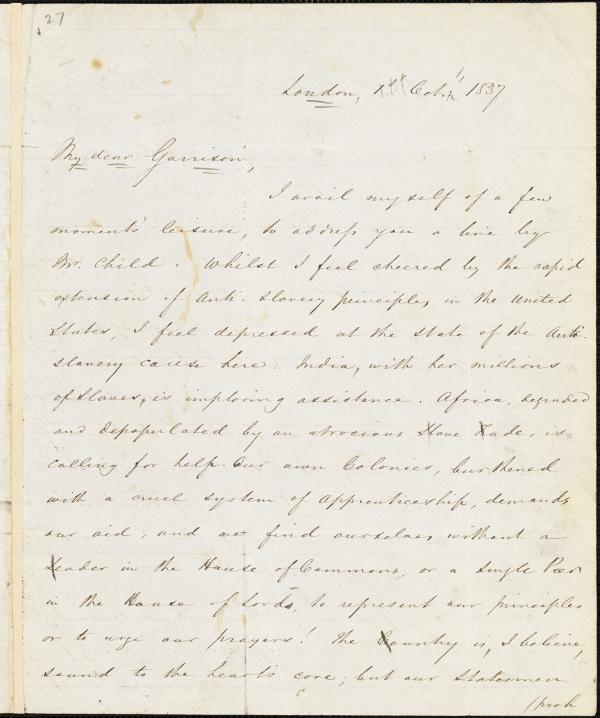 27
London, 1st Oct. 1837
My dear Garrison,
I avail myself of a few
moments' leisure, to address you a line by
Mr. Child. Whilst I feel cheered by the rapid
extension of Anti-Slavery principles in the United
States, I feel depressed at the state of the Anti-
slavery cause here. India, with her millions
of slaves, is imploring assistance. Africa, degraded
and depopulated by an atrocious Slave Trade, is
calling for help. Our own Colonies, burthened
with a cruel system of Apprenticeship, demands
our aid; and we find ourselves without a
Leader in the House of Commons, or a single Peer
in the House of Lords, to represent our principles
or to urge our prayers! The Country is, I believe,
sound to the heart's core; but our Statesmen